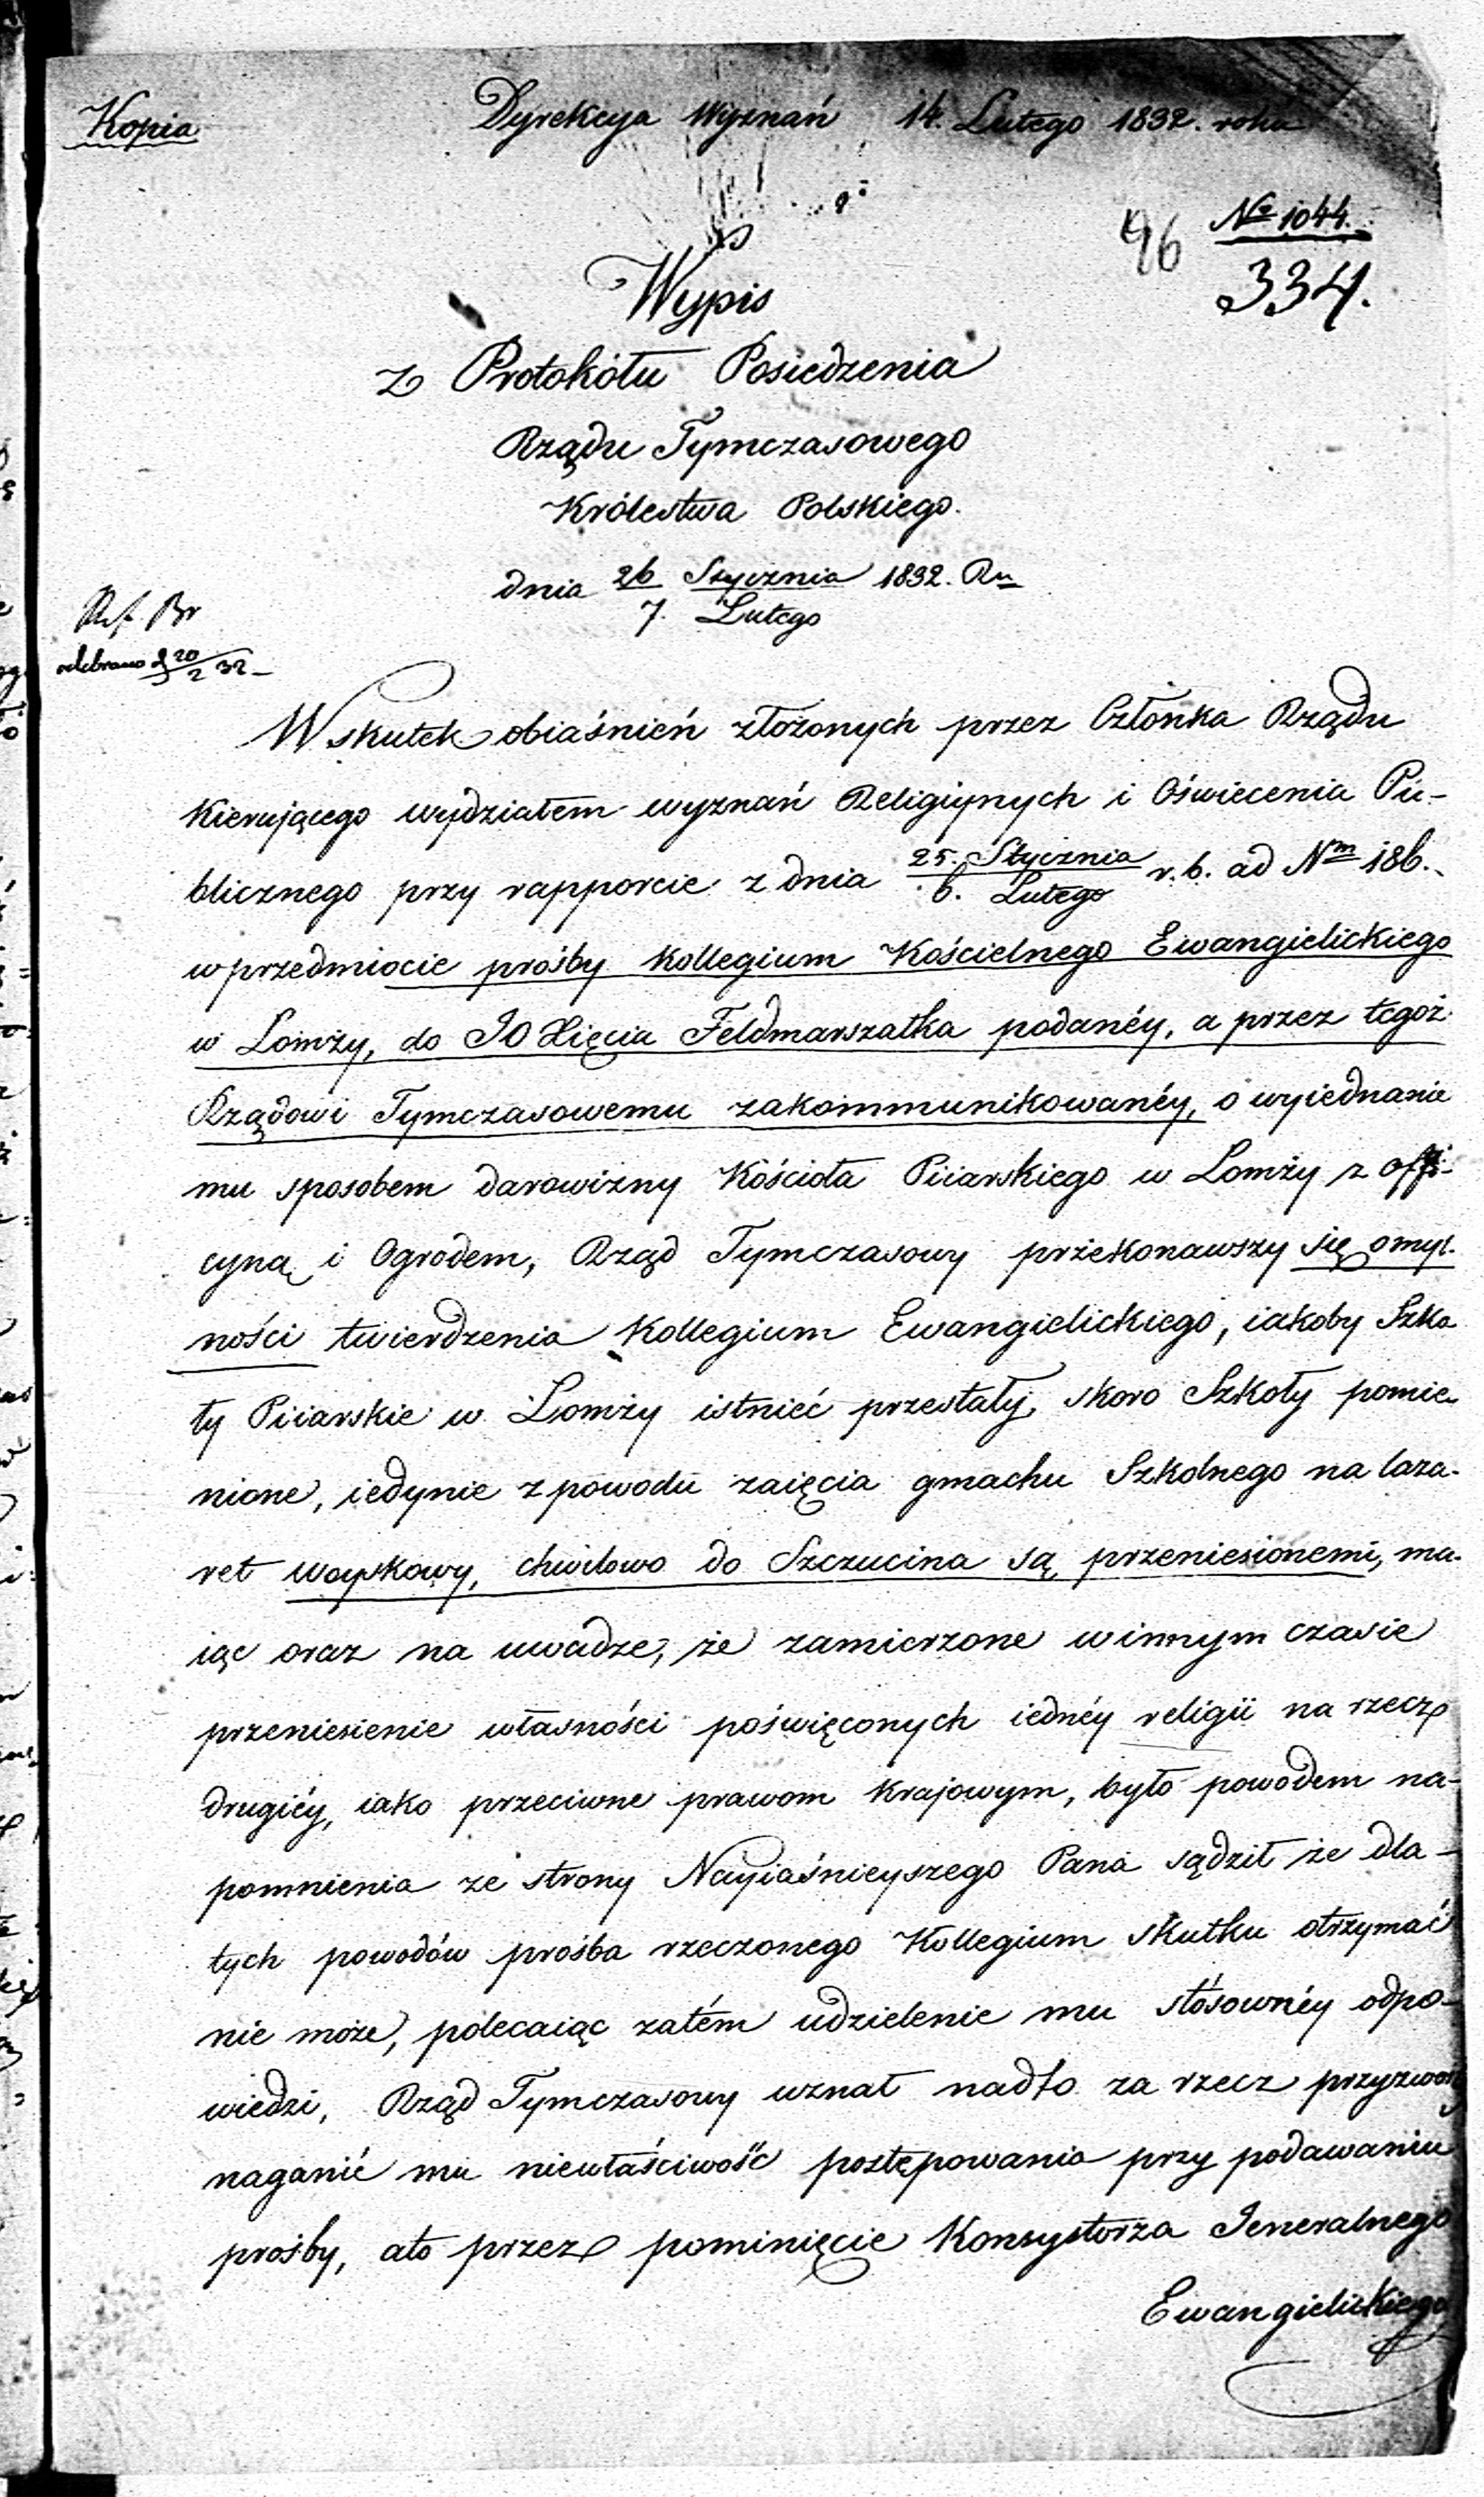 Kopia
Dyrekcya Wyznań 14. Lutego 1832. roku
96
№ 1044.
334.
Wypis
z Protokółu Posiedzenia
Rządu Tymczasowego
Królestwa Polskiego.
dnia 26 Stycznia / 7. Lutego 1832. Ru
Ref. Br
odebrano d 20/2 32 –
W skutek obiaśnień złożonych przez Członka Rządu
Kierującego wydziałem wyznań Religiynych i Oświecenia Pu-
blicznego przy rapporcie z dnia 25. Stycznia / 6. Lutego r. b. ad Nm 186.
w przedmiocie prośby Kollegium Kościelnego Ewangielickiego
w Łomży, do JO Xięcia Feldmarszałka podanéy, a przez tegoż
Rządowi Tymczasowemu zakommunikowanéy, o wyiednanie
mu sposobem darowizny Kościoła Piiarskiego w Łomży z offi-
cyną i Ogrodem, Rząd Tymczasowy przekonawszy się o myl-
ności twierdzenia Kollegium Ewangielickiego, iakoby Szko
ły Piiarskie w Łomży istnieć przestały, skoro Szkoły pomie-
nione, iedynie z powodu zaięcia gmachu Szkolnego na laza-
ret woyskowy, chwilowo do Szczucina są przeniesionemi, ma-
iąc oraz na uwadze, że zamierzone w innym czasie
przeniesienie własności poświęconych iednéy religii na rzecz
drugiéy, iako przeciwne prawom Krajowym, było powodem na-
pomnienia ze strony Nayiaśnieyszego Pana sądził że dla
tych powodów prośba rzeczonego Kollegium skutku otrzymać
nie może, polecaiąc zatém udzielenie mu stósownéy odpo-
wiedzi, Rząd Tymczasowy uznał nadto za rzecz przyzwoitą
naganić mu niewłaściwość postępowania przy podawaniu
prośby, a to przez pominięcie Konsystorza Jeneralnego
Ewangielickiego